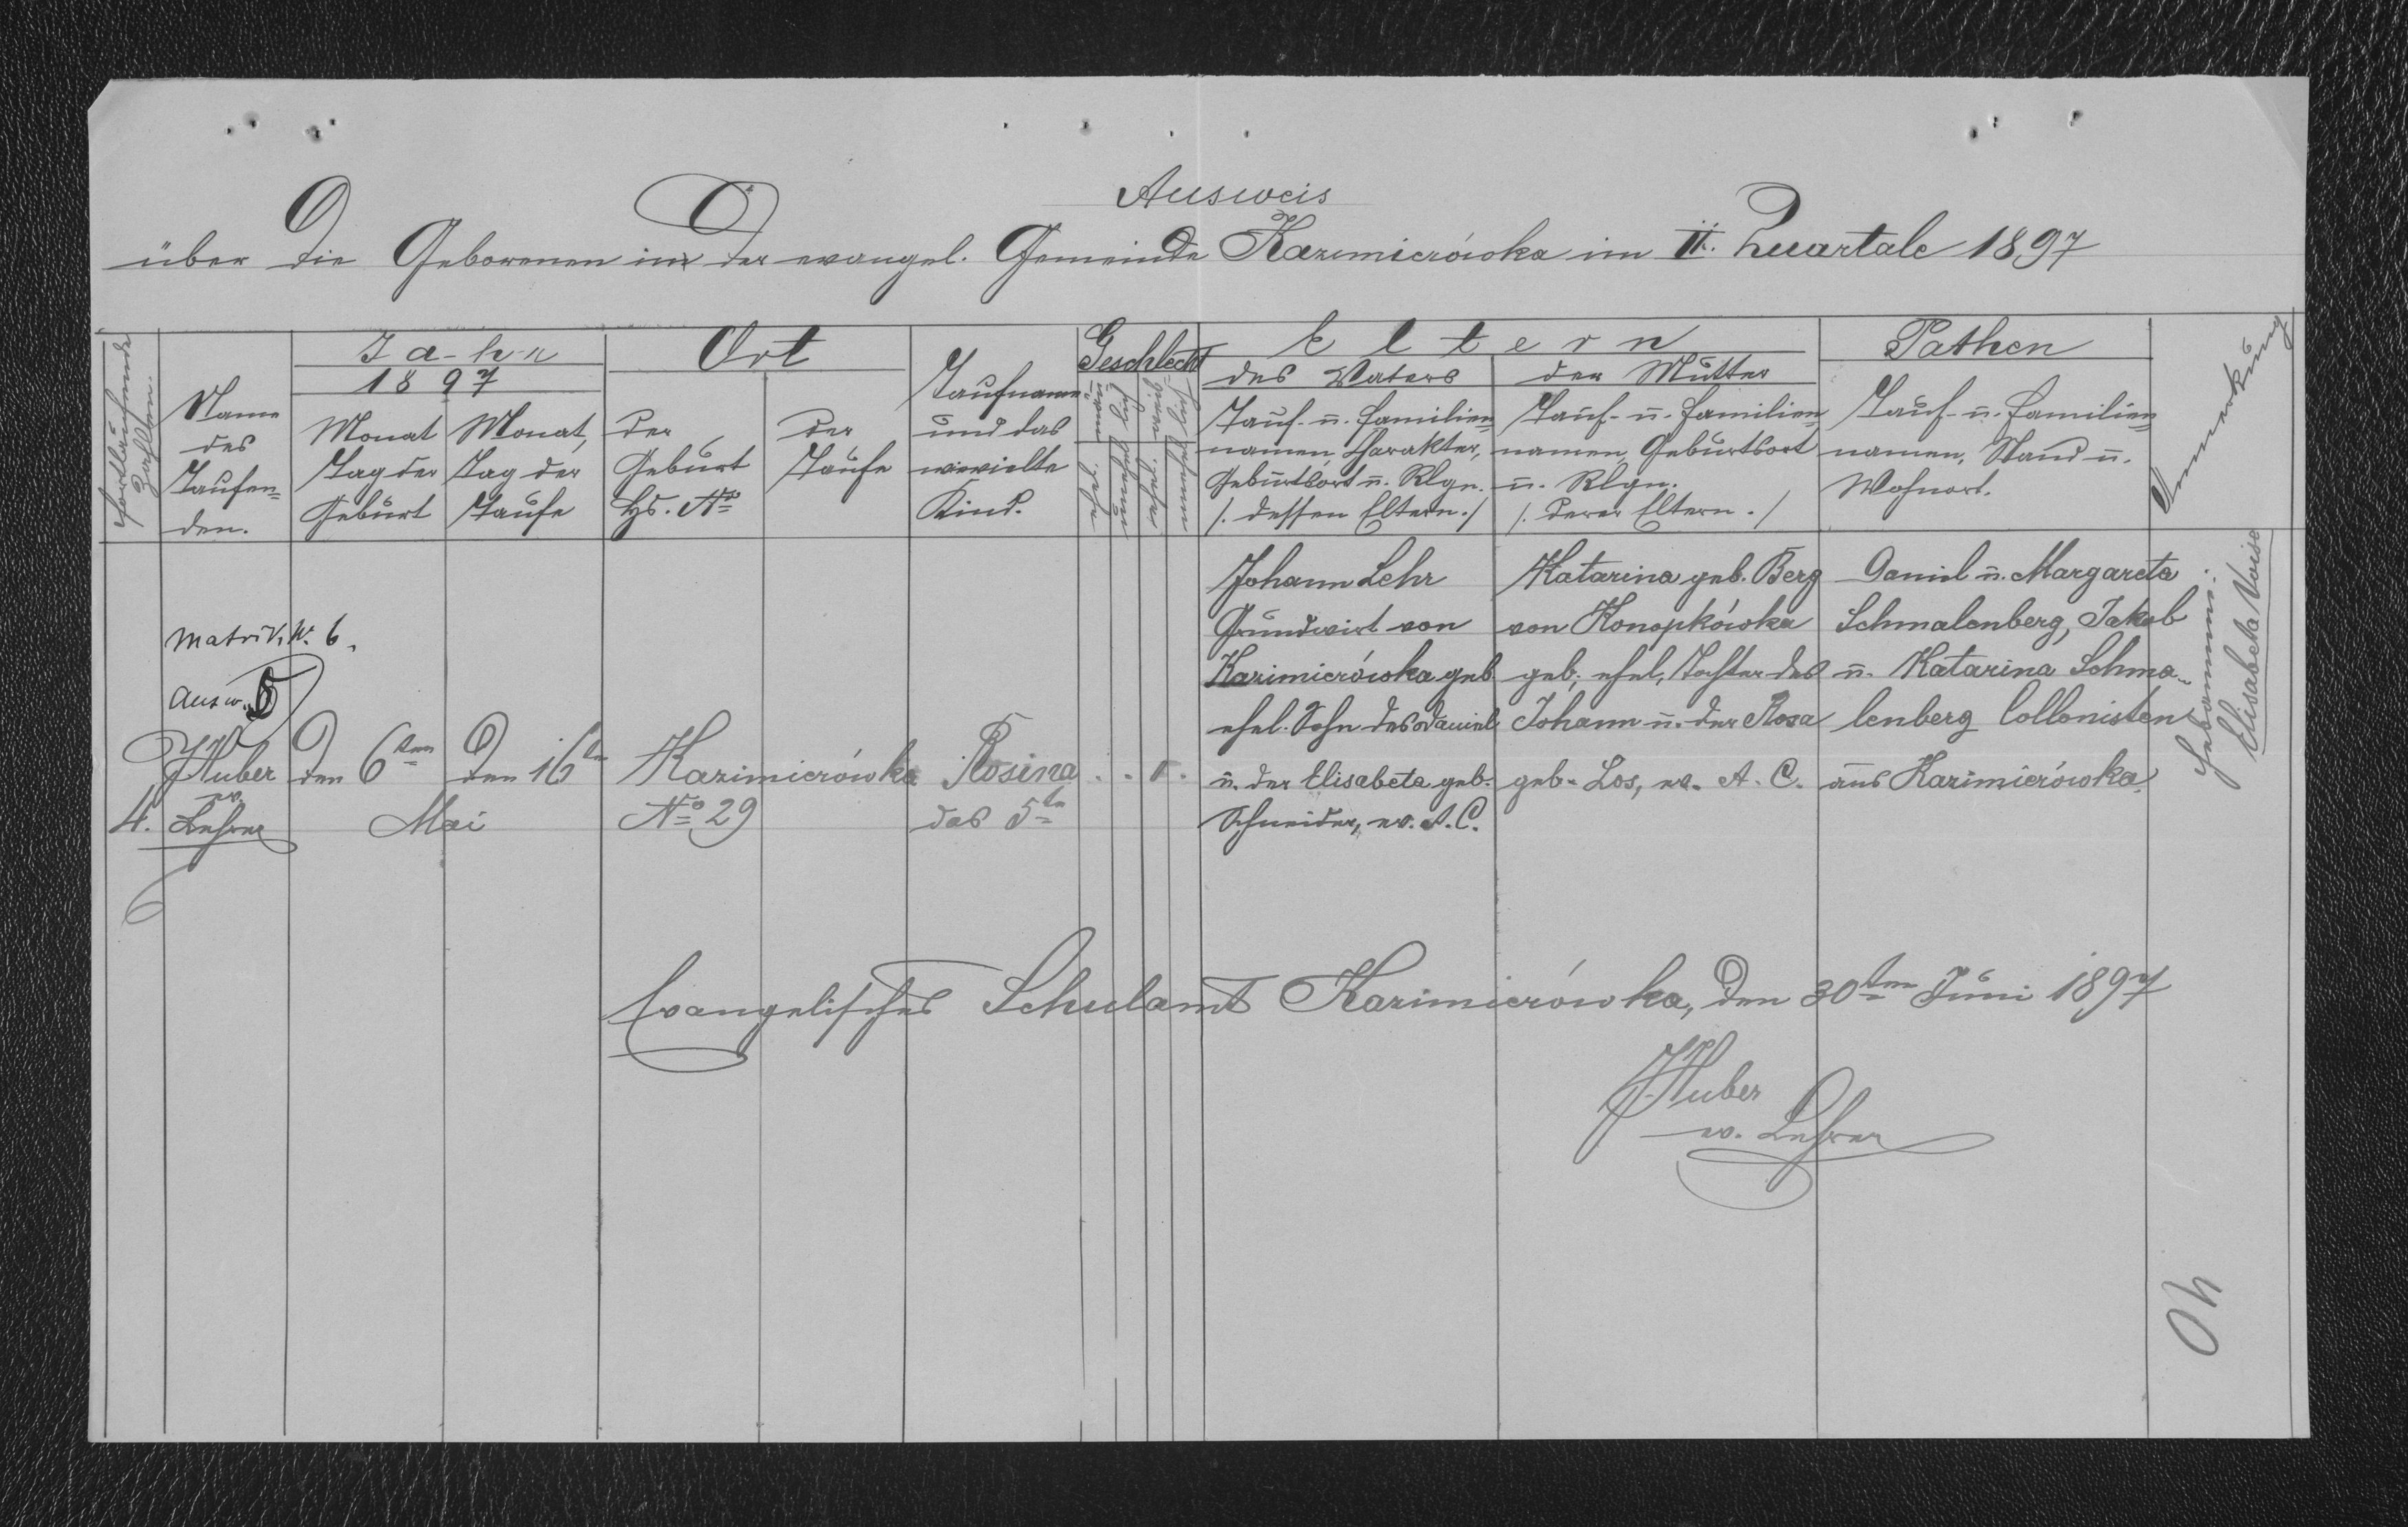 Ausweis
über die Geborenen in der evangel. Gemeinde Kazimierówka im II. Quartale 1897
Fortlaufende Zahlen.
Name
des
Taufen-
den.
Jahr
1897
Monat
Tag der
Geburt
Monat,
Tag der
Taufe
Ort
der
Geburt
Hs. No
der
Taufe
Taufname
und das
wievielte
Kind.
Geschlecht
männ-
lich
ehel.
unehel.
weib-
lich
ehel.
unehel.
Eltern
des Vaters
Tauf- u. Familien-
namen, Charakter,
Geburtsort u. Rlgn.
/. dessen Eltern ./
der Mutter
Tauf- u. Familien-
namen, Geburtsort
u. Rlgn.
/. deren Eltern ./
Pathen
Tauf- u. Familien-
namen, Stand u.
Wohnort.
Anmerkung
Matrik. N. 6.
Ausw. 5
4.
JHuber
ev.
Lehrer
den 6ten
den 16ten
Mai
Kazimierówka
No 29
Rosina
das 5te
. . 1 .
Johann Lehr
Grundwirt von
Kazimierówka geb.
ehel. Sohn des Daniel
u. der Elisabeta geb.
Schneider, ev. A. C.
Katarina geb. Berg
von Konopkówka
geb., ehel. Tochter des
Johann u. der Rosa
geb. Los, ev. A. C.
Daniel u. Margareta
Schmalenberg, Jakob
u. Katarina Schma-
lenberg Collonisten
aus Kazimierówka.
Hebammin:
Elisabeta Voise
Evangelisches Schulamt Kazimierówka, den 30ten Juni 1897
JHuber
ev. Lehrer
40